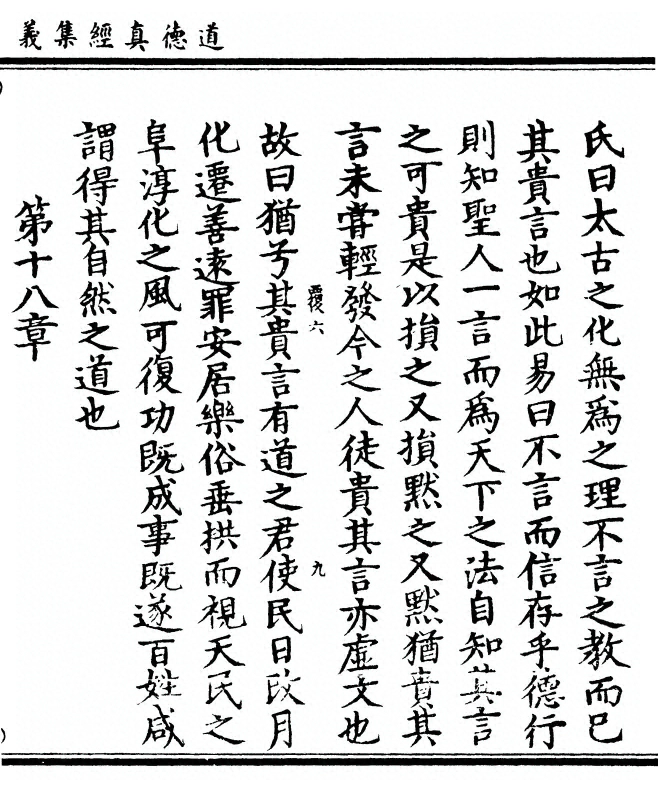 道德真經集義
氏曰太古之化無爲之理不言之教而已
其貴言也如此易曰不言而信存乎德行
則知聖人一言而爲天下之法自知其言
之可貴是以損之又損默之又默猶貴其
言未甞輕發今之人徒貴其言亦虛文也
覆六
九
故曰猶兮其貴言有道之君使民日改月
化遷善遠罪安居樂俗垂拱而視天民之
阜淳化之風可復功既成事既遂百姓咸
謂得其自然之道也
第十八章